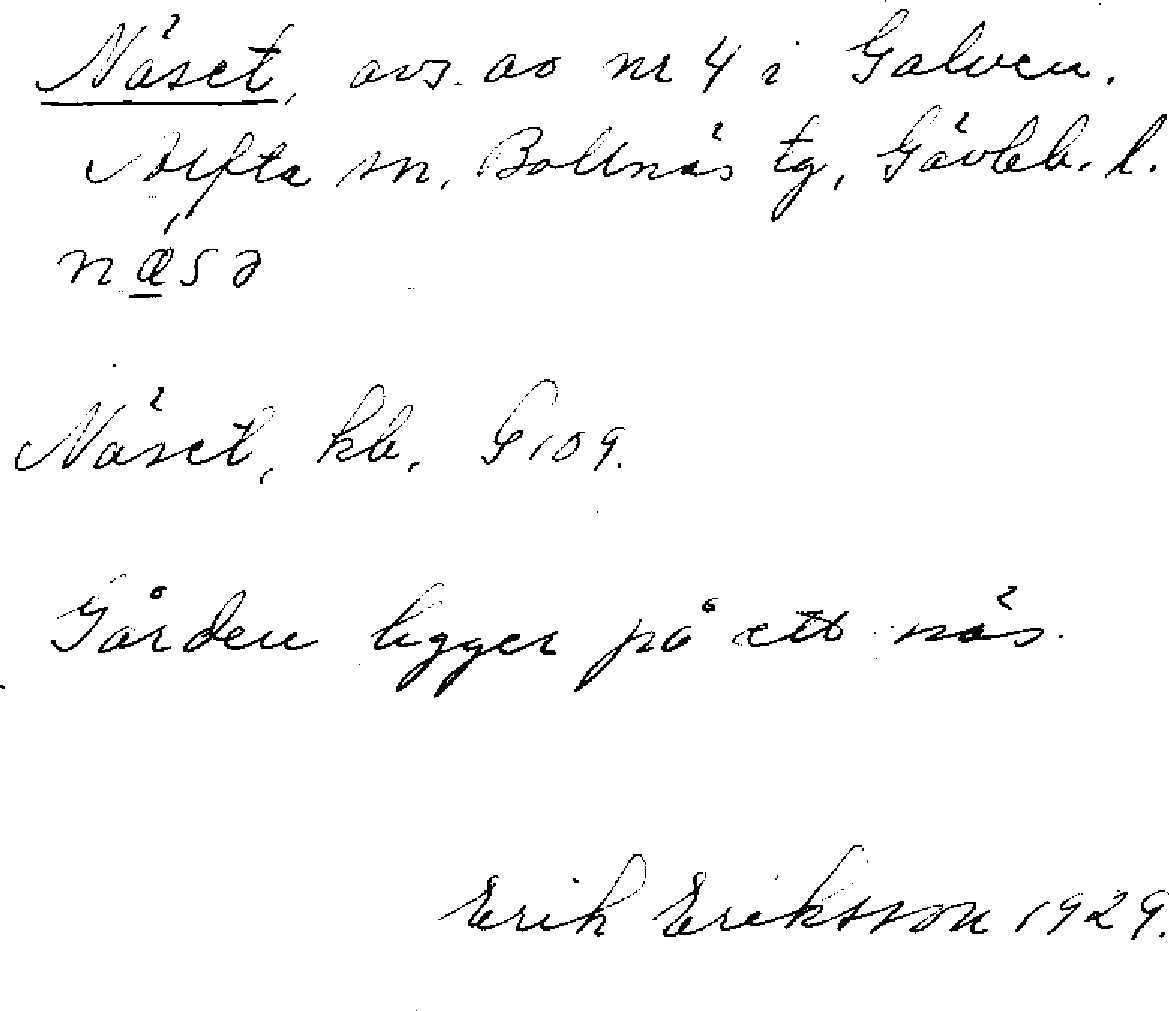 Näset, avs. av nr 4 i Galven.
Alfta sn, Bollnäs tg, Gävleb. l.
næ̲sə
Näset, kb. G 109.
Gården ligger på ett näs.
Erik Eriksson 1929.